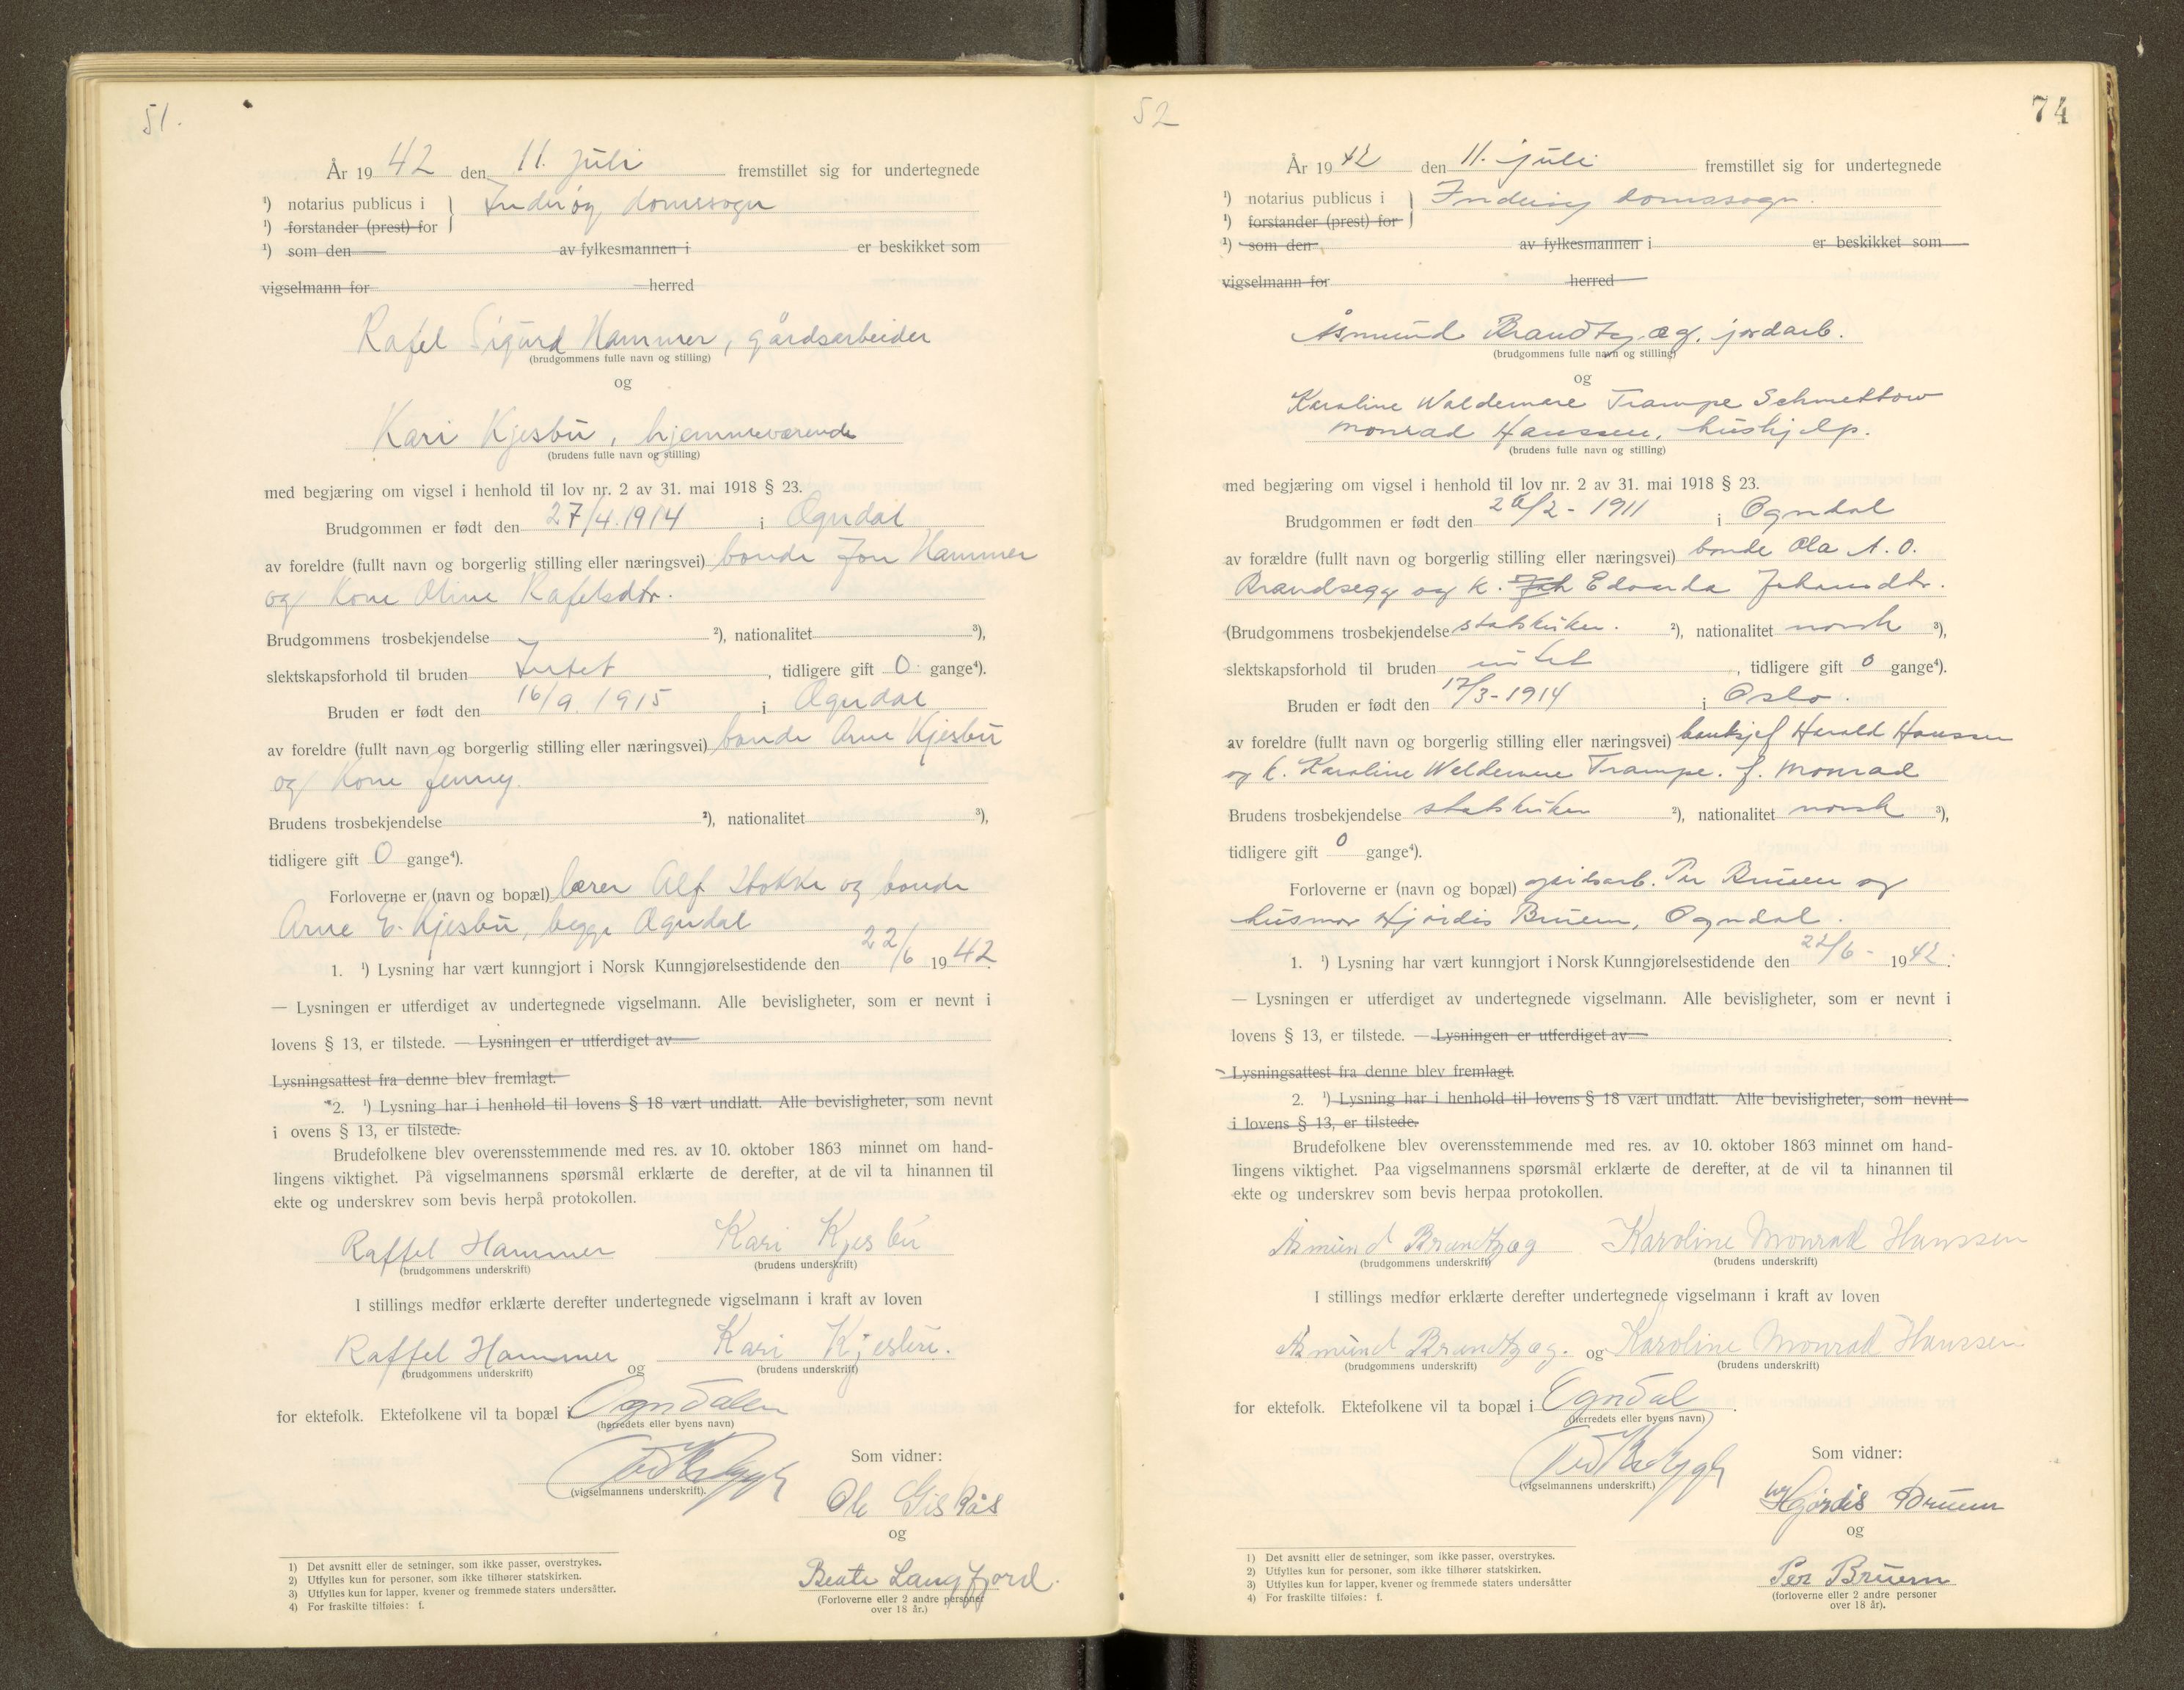 51.
År 1942 den 11. juli fremstillet sig for undertegnede
¹) notarius publicus i } Inderøy domssogn
¹) forstander (prest) for
¹) som den av fylkesmannen i er beskikket som
vigselmann for herred
Rafel Sigurd Hammer, gårdsarbeider
(brudgommens fulle navn og stilling)
og
Kari Kjesbu, hjemmeværende
(brudens fulle navn og stilling)
med begjæring om vigsel i henhold til lov nr. 2 av 31. mai 1918 § 23.
Brudgommen er født den 27/4 1914 i Ogndal
av foreldre (fullt navn og borgerlig stilling eller næringsvei) bonde Jon Hammer
og kone Oline Rafelsdtr.
Brudgommens trosbekjendelse ²), nationalitet ³),
slektskapsforhold til bruden Intet, tidligere gift 0 gange⁴).
Bruden er født den 16/9 1915 i Ogndal
av foreldre (fullt navn og borgerlig stilling eller næringsvei) bonde Arne Kjesbu
og kone Jenny.
Brudens trosbekjendelse ²), nationalitet ³),
tidligere gift 0 gange⁴).
Forloverne er (navn og bopæl) lærer Alf Stokke og bonde
Arne E. Kjesbu, begge Ogndal
1. ¹) Lysning har vært kunngjort i Norsk Kunngjørelsestidende den 22/6 1942.
— Lysningen er utferdiget av undertegnede vigselmann. Alle bevisligheter, som er nevnt i
lovens § 13, er tilstede. — Lysningen er utferdiget av
Lysningsattest fra denne blev fremlagt.
2. ¹) Lysning har i henhold til lovens § 18 vært undlatt. Alle bevisligheter, som nevnt
i ovens § 13, er tilstede.
Brudefolkene blev overensstemmende med res. av 10. oktober 1863 minnet om hand-
lingens viktighet. På vigselmannens spørsmål erklærte de derefter, at de vil ta hinannen til
ekte og underskrev som bevis herpå protokollen.
Raffel Hammer Kari Kjesbu
(brudgommens underskrift) (brudens underskrift)
I stillings medfør erklærte derefter undertegnede vigselmann i kraft av loven
Raffel Hammer og Kari Kjesbu.
(brudgommens underskrift) (brudens underskrift)
for ektefolk. Ektefolkene vil ta bopæl i Ogndalen
(herredets eller byens navn)
Som vidner:
(vigselmannens underskrift).
Ole Giskås
og
Beate Langfjord.
(Forloverne eller 2 andre personer
over 18 år.)
1) Det avsnitt eller de setninger, som ikke passer, overstrykes.
2) Utfylles kun for personer, som ikke tilhører statskirken.
3) Utfylles kun for lapper, kvener og fremmede staters undersåtter.
4) For fraskilte tilføies: f.
52
74
År 1942 den 11. juli fremstillet sig for undertegnede
¹) notarius publicus i } Inderøy domssogn.
¹) forstander (prest) for
¹) som den av fylkesmannen i er beskikket som
vigselmann for herred
Åsmund Brandtzæg, jordarb.
(brudgommens fulle navn og stilling)
og
Karoline Waldemare Trampe Schmettow
Monrad Hanssen, hushjelp.
(brudens fulle navn og stilling)
med begjæring om vigsel i henhold til lov nr. 2 av 31. mai 1918 § 23.
Brudgommen er født den 26/2 - 1911 i Ogndal
av forældre (fullt navn og borgerlig stilling eller næringsvei) bonde Ola A. O.
Brandsegg og k. Joh Edvarda Johansdtr.
(Brudgommens trosbekjendelse statskirken. ²), nationalitet norsk ³),
slektskapsforhold til bruden intet, tidligere gift 0 gange⁴).
Bruden er født den 17/3 - 1914 i Oslo.
av foreldre (fullt navn og borgerlig stilling eller næringsvei) banksjef Harald Hanssen
og k. Karoline Waldemare Trampe. f. Monrad
Brudens trosbekjendelse statskirken ²), nationalitet norsk ³),
tidligere gift 0 gange⁴).
Forloverne er (navn og bopæl) Per Bruem og
husmor Hjørdis Bruem, Ogndal.
1. ¹) Lysning har vært kunngjort i Norsk Kunngjørelsestidende den 22/6 - 1942.
— Lysningen er utferdiget av undertegnede vigselmann. Alle bevisligheter, som er nevnt i
lovens § 13, er tilstede. — Lysningen er utferdiget av
Lysningsattest fra denne blev fremlagt.
2. ¹) Lysning har i henhold til lovens § 18 vært undlatt. Alle bevisligheter, som nevnt
i lovens § 13, er tilstede.
Brudefolkene blev overensstemmende med res. av 10. oktober 1863 minnet om hand-
lingens viktighet. Paa vigselmannens spørsmål erklærte de derefter, at de vil ta hinannen til
ekte og underskrev som bevis herpaa protokollen.
Åsmund Brandtzæg Karoline Monrad Hanssen
(brudgommens underskrift) (brudens underskrift)
I stillings medfør erklærte derefter undertegnede vigselmann i kraft av loven
Åsmund Brandtzæg. og Karoline Monrad Hanssen
(brudgommens underskrift) (brudens underskrift)
for ektefolk. Ektefolkene vil ta bopæl i Ogndal.
(herredets eller byens navn)
Som vidner:
(vigselmannens underskrift.)
Hjørdis Bruem
og
Per Bruem
(forloverne eller 2 andre personer
over 18 år).
1) Det avsnitt eller de setninger, som ikke passer, overstrykes.
2) Utfylles kun for personer, som ikke tilhører statskirken.
3) Utfylles kun for lapper, kvener og fremmede staters undersåtter
4) For fraskilte tilføies: f.